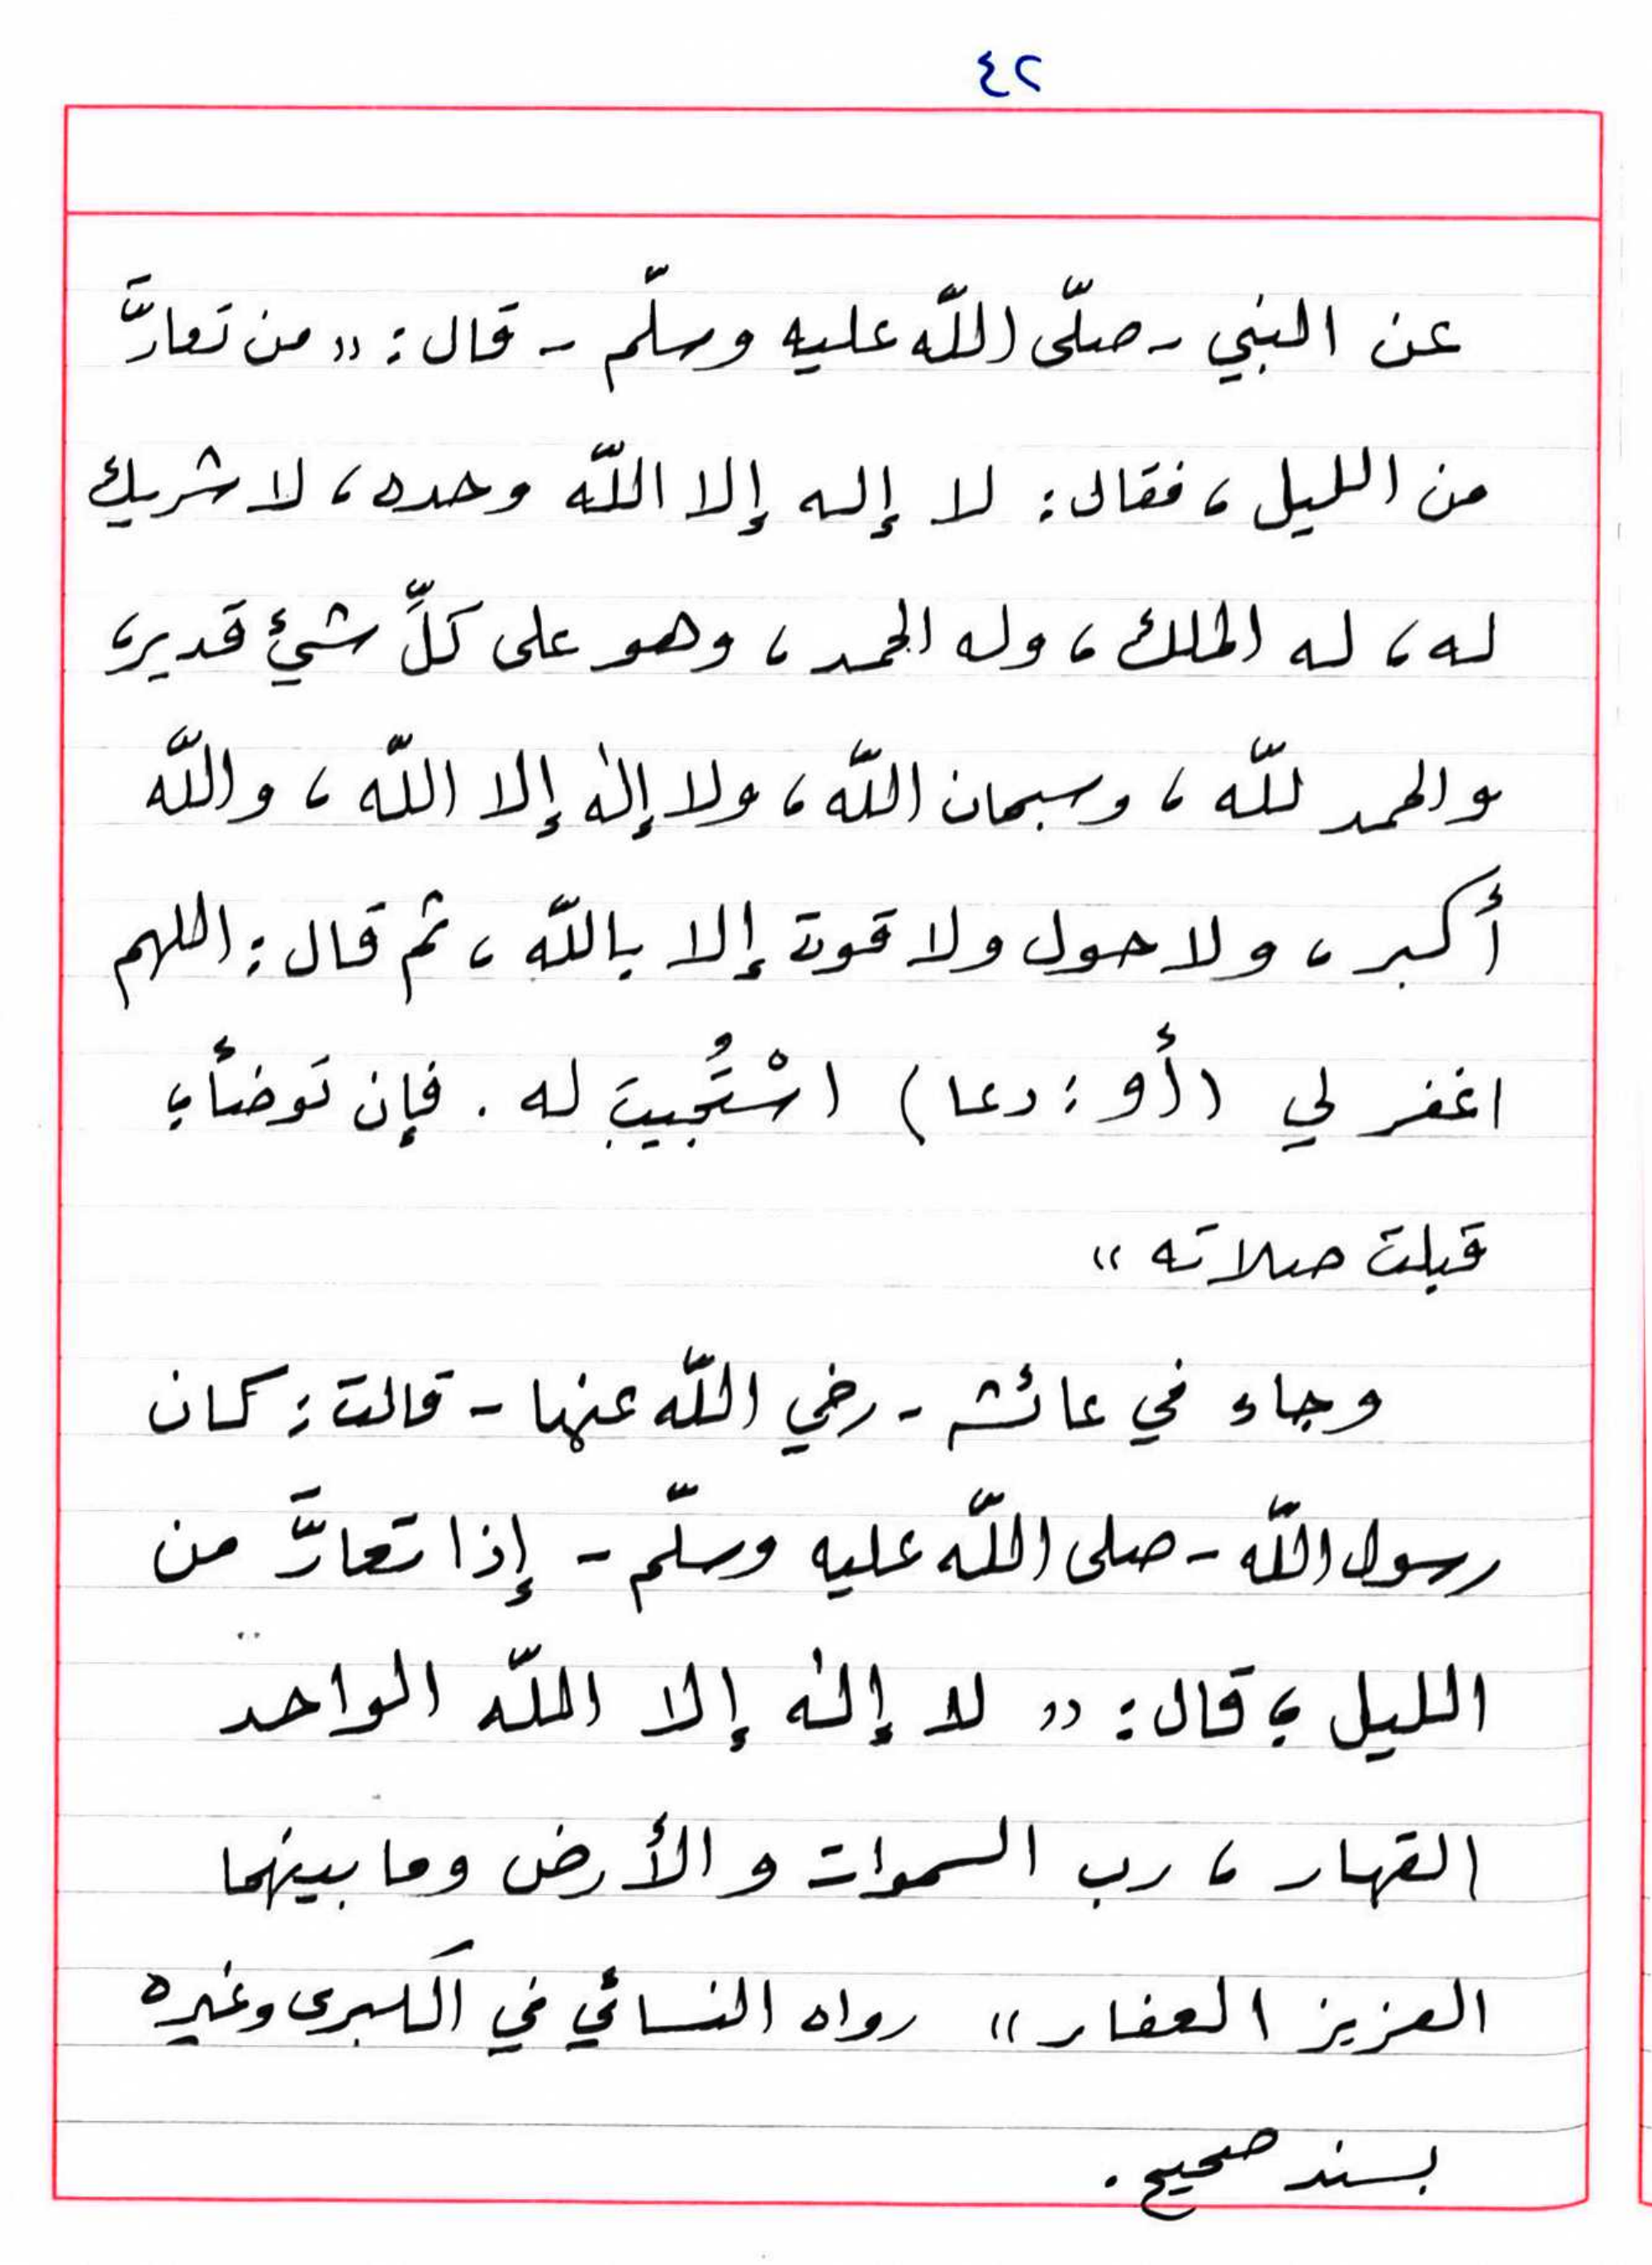 ٤٢
عن النبي - صلّى اللّه عليه وسلّم - قال: « من تعارَّ
من الليل، فقال: لا إله إلا اللّه وحده، لا شريك
له، له الملك، وله الحمد، وهو على كلِّ شيئ قدير،
والحمد للّه، وسبحان اللّه، ولا إلٰه إلا اللّه، واللّه
أكبر، ولا حول ولا قوة إلا باللّه، ثم قال: اللهم
اغفر لي (أو: دعا) اسْتُجيبَ له. فإن توضأ؛
قبلت صلاته »
وجاء في عائشه - رضي اللّه عنها - قالت: كان
رسول اللّه - صلى اللّه عليه وسلّم - إذا تعارَّ من
الليل؛ قال: « لا إلٰه إلا اللّه الواحد
القهار، رب السموات والأرض وما بينهما
العزيز الغفار » رواه النسائي في الكبرى وغيره
بسند صحيح.